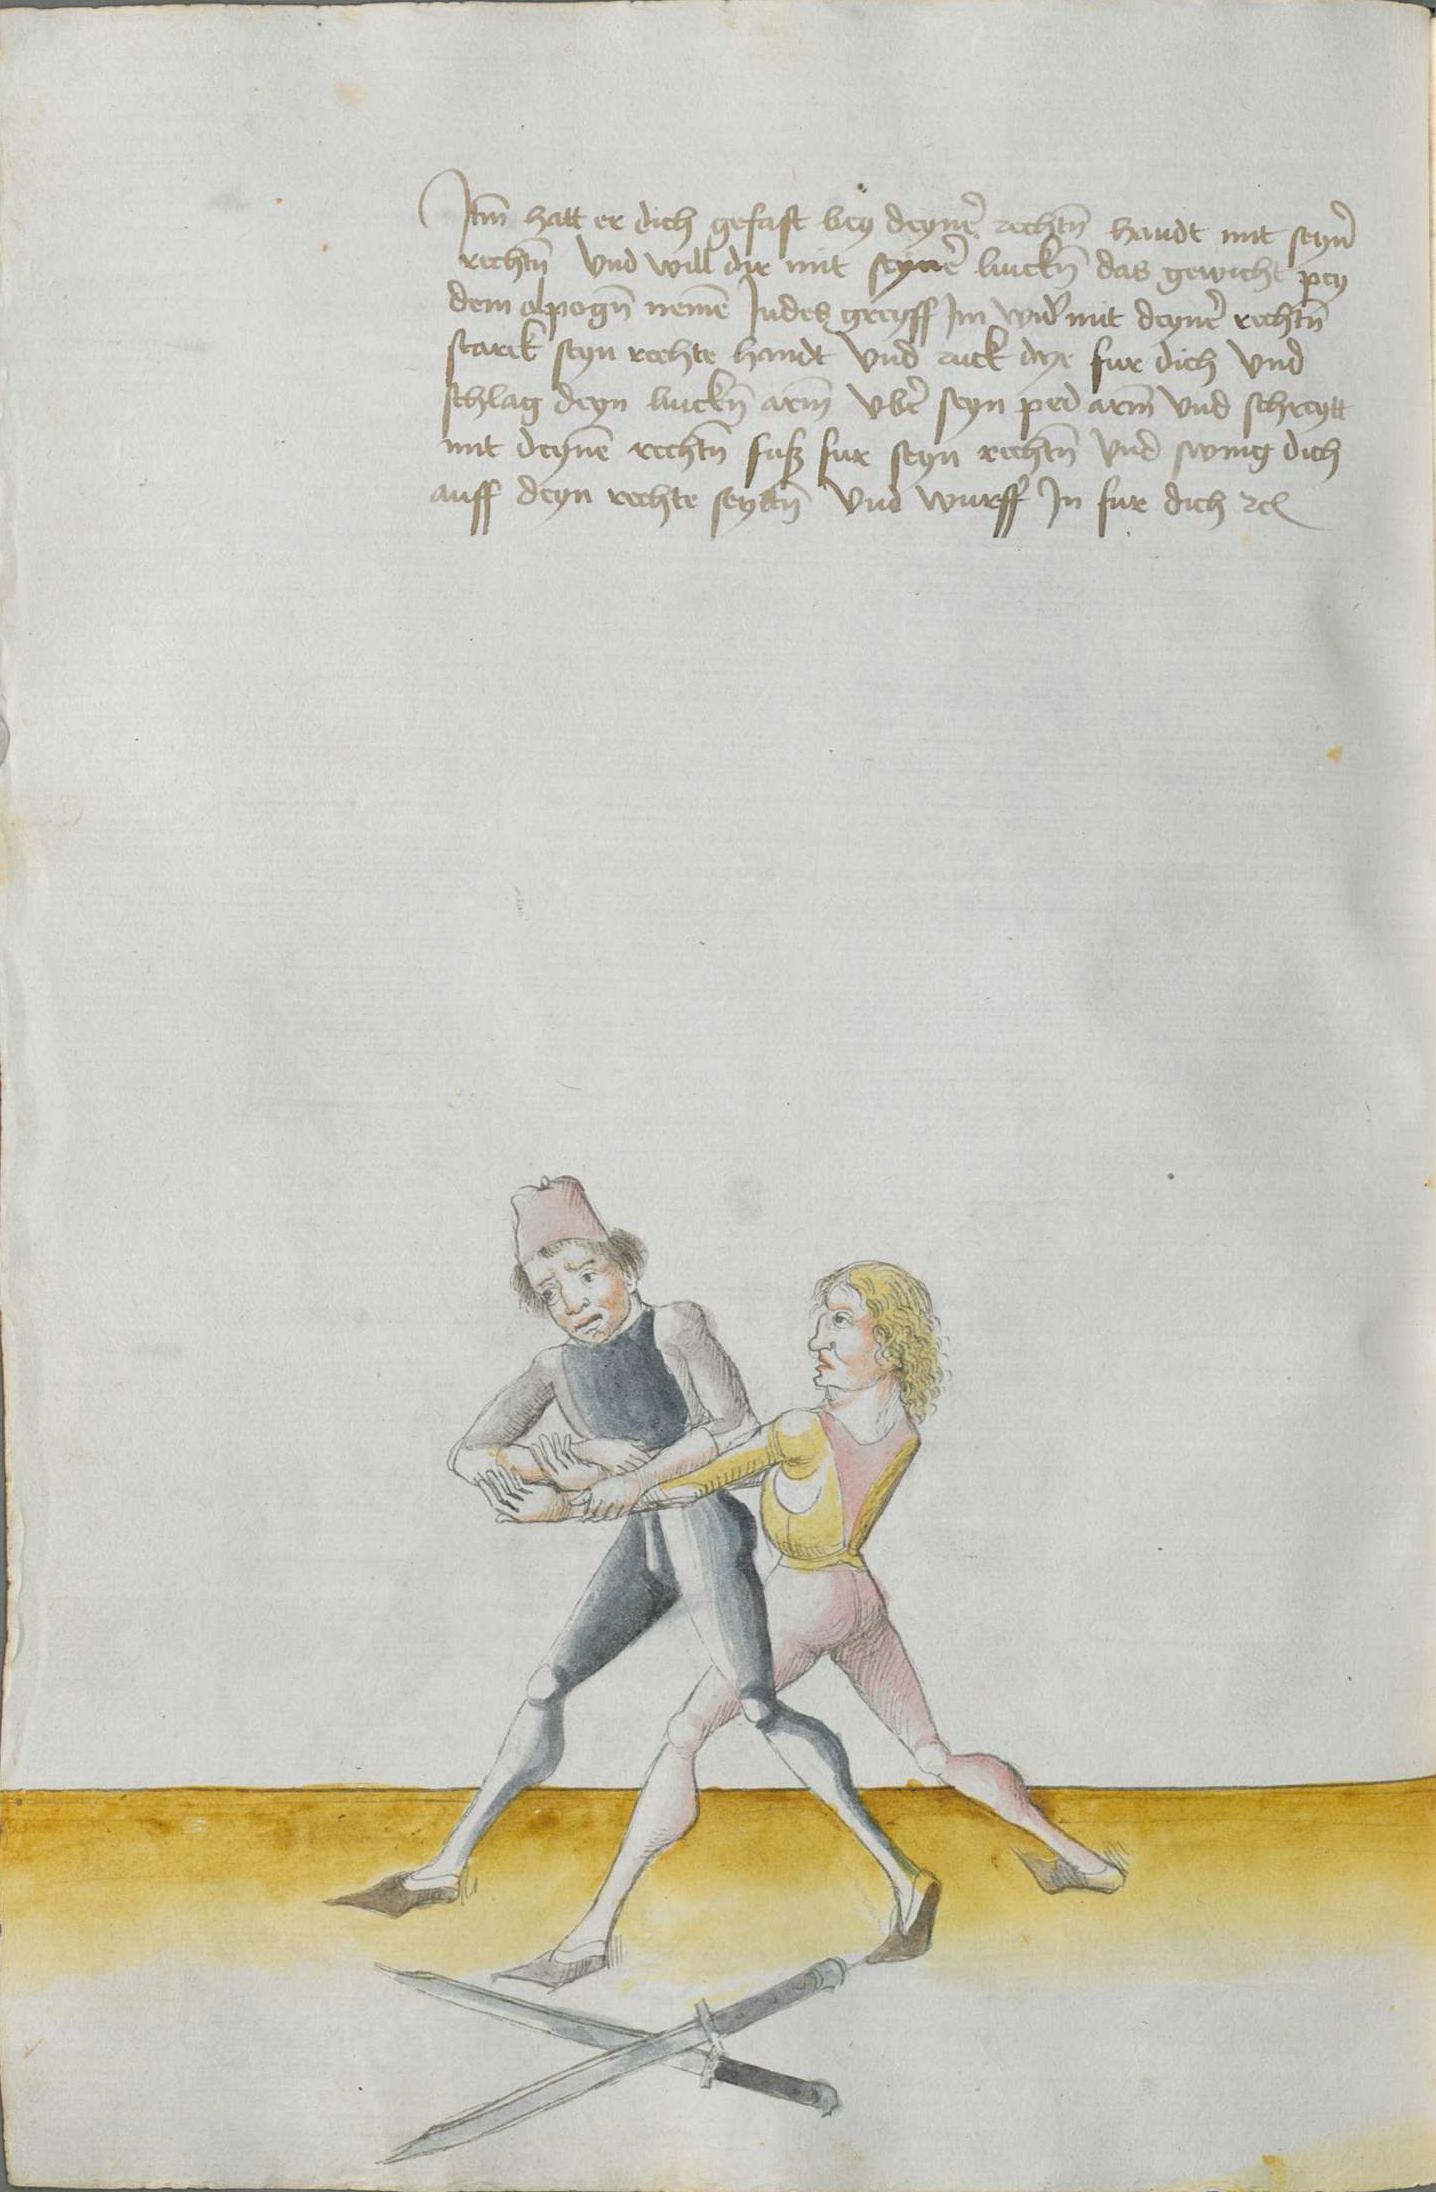 Itm̄ hatt er dich gefast bey deyne᷑ rechtn̄ handt mit seyn᷑
rechtn̄ vnd will dir mit seyne᷑ linckn̄ das gewicht pey
dem elpogn̄ neme̅ Indes greyff Im wid᷑ mit deyne᷑ rechtn̄
starck seyn rechte handt vnd ruck dye fur dich vnd
schlag deyn linckn̄ arm̄ vbe᷑ seyn ped arm̄ vnd schreytt
mit deyne̅ rechtn̄ fuß fur seyn rechtn̄ vnd swing dich
auff deyn rechte seyttn̄ vnd wurff In fur dich ꝛcꝭ